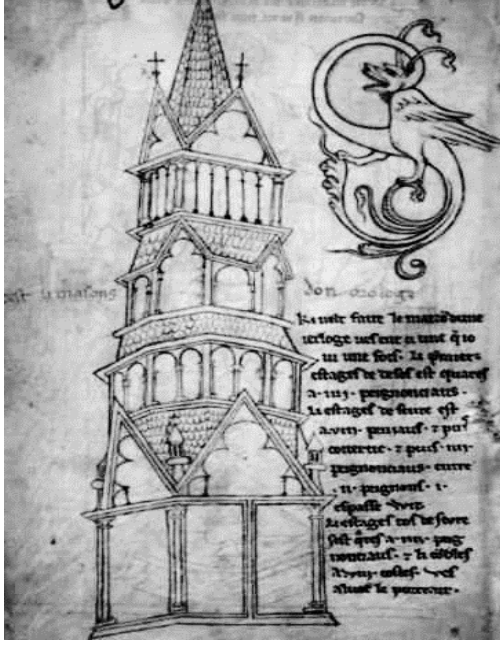 est li masons don orologe
ki velt faire le maizō dune
ierloge ves ent ci une q̄ io
vi une fois. Li p̄miers
estages de desos est quares
a .iiii. peignonciaus.
Li estages de seure est
a .viii. peniaus. ⁊ puis
covertic. ⁊ puis .iiii.
peignonciaus. entre
.ii. peignons. i.
espasse wit
Li estages tos de sovre
sest qres a .iiii. peig
nonciaus. ⁊ li cōbles
a .viii. costes. ves
aluec le portrait.